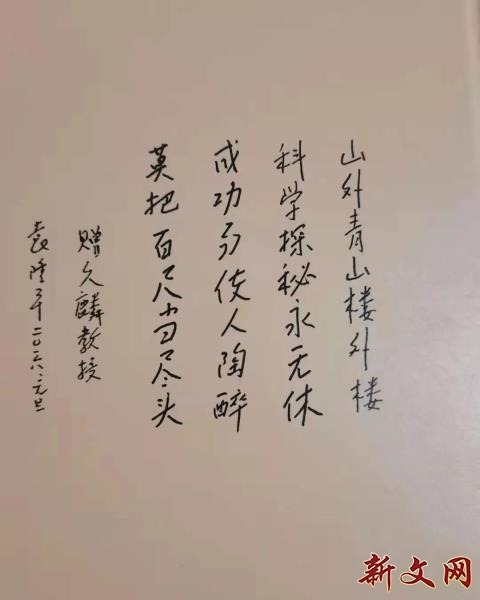 山外青山楼外楼
科学探秘永无休
成功易使人陶醉
莫把百尺当尽头
赠久麟教授
袁隆平 元旦
新文网